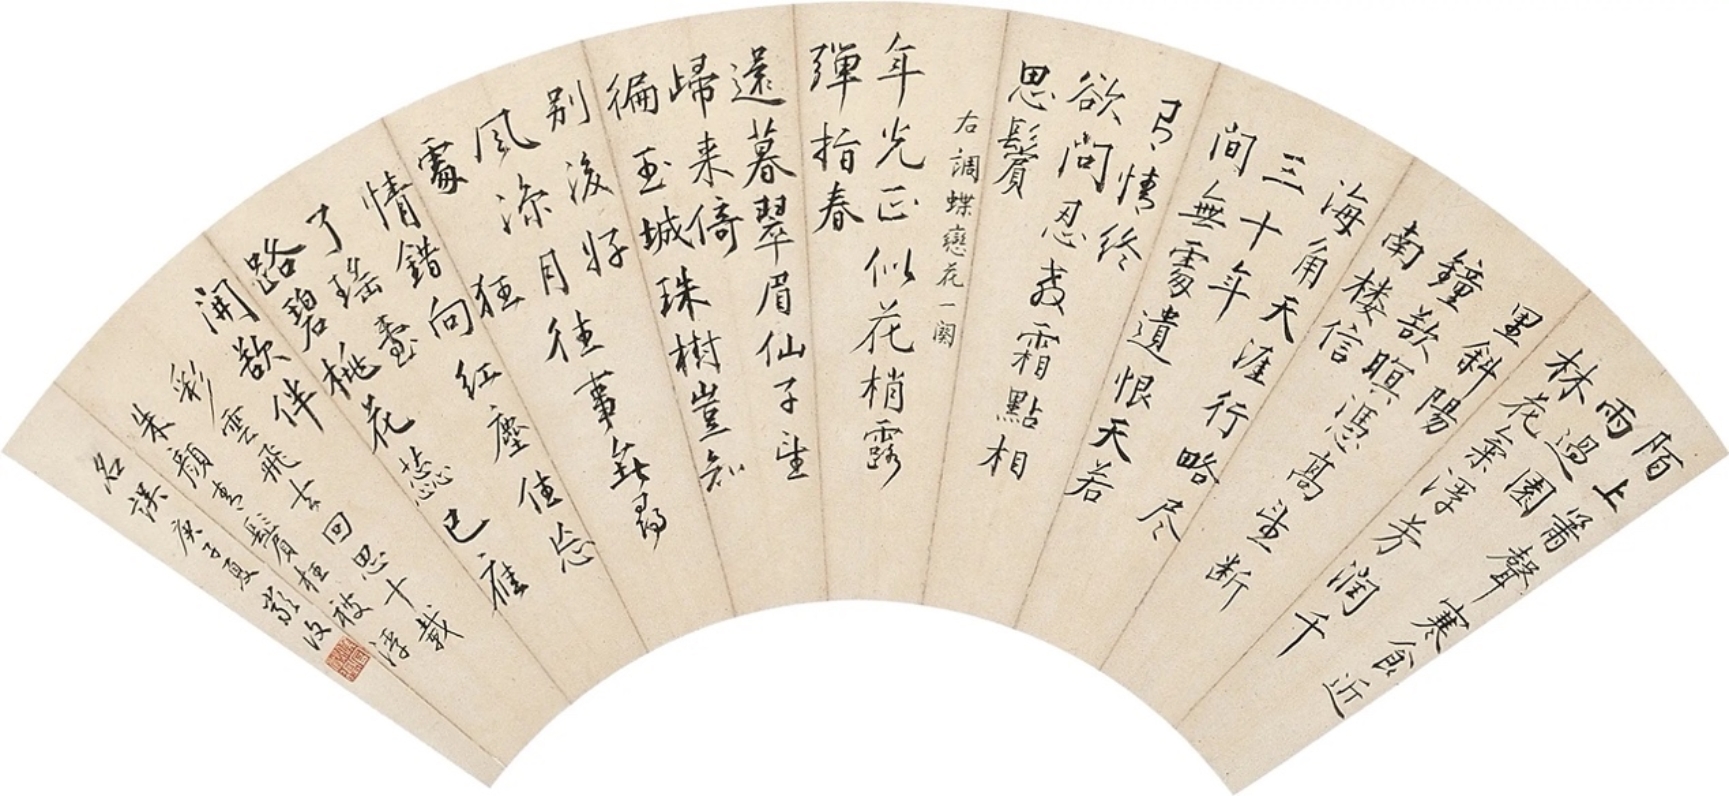 陌上簫聲寒食近
雨過園
林花氣浮芳潤千
里斜陽
鐘欲暝憑高望斷
南楼信
海角天涯行略尽
三十年
間無處遺恨天若
有情終
欲問忍教霜點相
思鬢
右調蝶戀花一闋
年光正似花梢露
彈指春
還暮翠眉仙子望
歸来倚
徧玉城珠樹豈知
别後好
風涼月往事無尋
處狂
情錯向紅塵住忘
了瑤臺
路碧桃花蕊已應
開欲伴
彩雲飛去回思十載
朱顏青鬢枉被浮
名誤 庚子夏 嚴汝